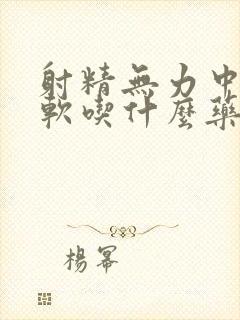 射精無力中
軟喫什麼藥
楊冪